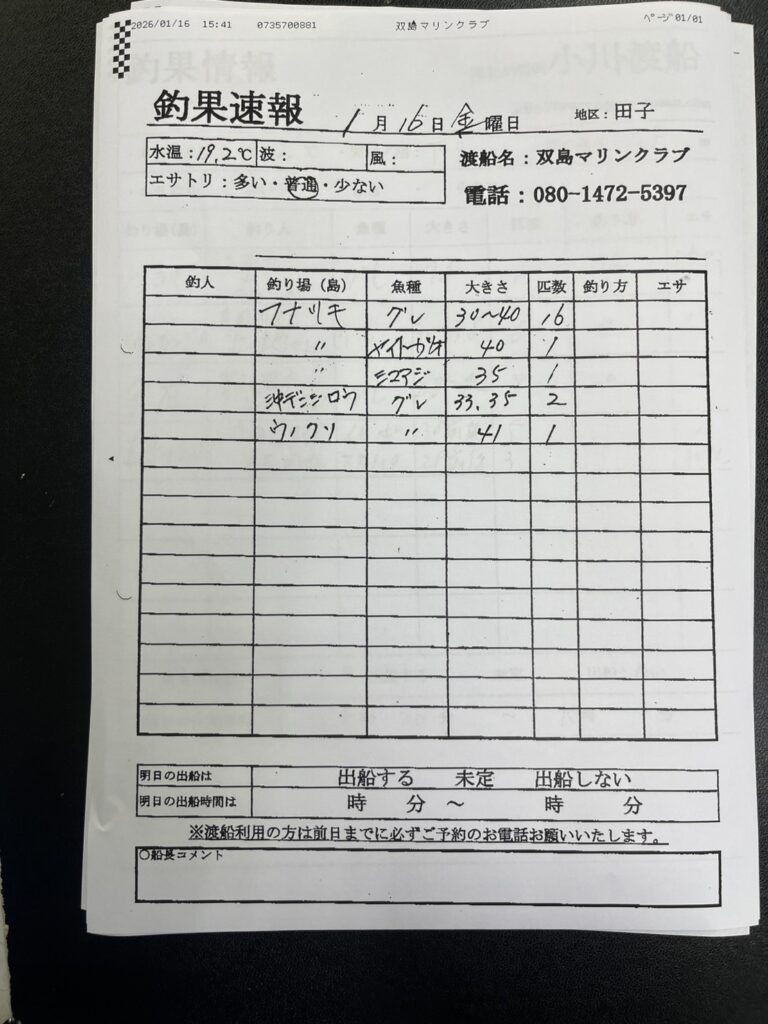 2026/01/16 15:41 0735700881 双島マリンクラブ ﾍﾟｰｼﾞ01/01
釣果速報 1月16日金曜日 地区：田子
水温：19.2℃ 波： 風： 渡船名：双島マリンクラブ
エサトリ：多い・普通・少ない 電話：080-1472-5397
釣人 釣り場（島） 魚種 大きさ 匹数 釣り方 エサ
フナツキ グレ 30〜40 16
〃 40 1
〃 シマアジ 35 1
沖デンジロウ グレ 33.35 2
ウノクソ 〃 41 1
明日の出船は 出船する 未定 出船しない
明日の出船時間は 時 分 〜 時 分
※渡船利用の方は前日までに必ずご予約のお電話お願いいたします。
○船長コメント